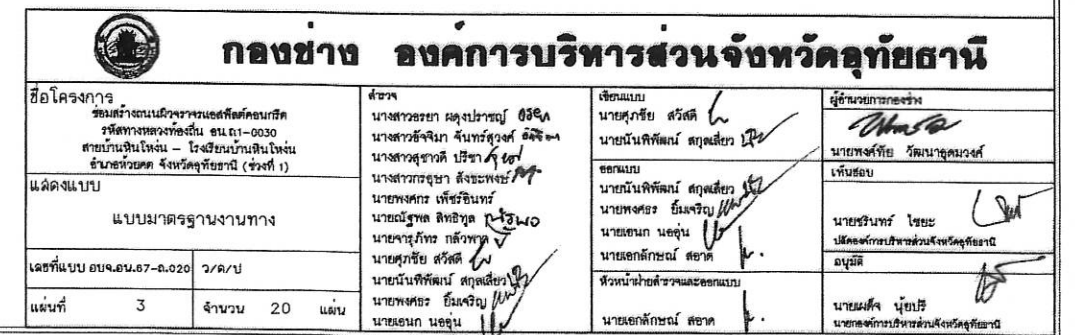 กองช่าง องค์การบริหารส่วนจังหวัดอุทัยธานี
ชื่อโครงการ
ซ่อมสร้างถนนผิวจราจรแอสฟัลต์คอนกรีต
รหัสทางหลวงท้องถิ่น อน.ถ1-0030
สายบ้านหินโหง่น – โรงเรียนบ้านหินโหง่น
อำเภอห้วยคต จังหวัดอุทัยธานี (ช่วงที่ 1)
แสดงแบบ
แบบมาตรฐานงานทาง
เลขที่แบบ อบจ.อน.67-ถ.020 ว/ด/ป
แผ่นที่ 3 จำนวน 20 แผ่น
สำรวจ
นางสาวอรยา ผดุงปราชญ์
นางสาวอัจจิมา จันทร์สุวงศ์
นางสาวสุชาวดี ปรีชา
นางสาวกรอุษา สังขะพงษ์
นายพงศกร เพ็ชร์อินทร์
นายณัฐพล สิทธิทูล
นายจารุภัทร กลัวพาล
นายศุภชัย สวัสดี
นายนันพิพัฒน์ สกุลเสี่ยว
นายพงศธร ยิ้มเจริญ
นายเอนก นออุ่น
เขียนแบบ
นายศุภชัย สวัสดี
นายนันพิพัฒน์ สกุลเสี่ยว
ออกแบบ
นายนันพิพัฒน์ สกุลเสี่ยว
นายพงศธร ยิ้มเจริญ
นายเอนก นออุ่น
นายเอกลักษณ์ สอาด
หัวหน้าฝ่ายสำรวจและออกแบบ
นายเอกลักษณ์ สอาด
ผู้อำนวยการกองช่าง
นายพงศ์ทัย วัฒนาอุดมวงศ์
เห็นชอบ
นายชรินทร์ ไชยะ
ปลัดองค์การบริหารส่วนจังหวัดอุทัยธานี
อนุมัติ
นายเผด็จ นุ้ยปรี
นายกองค์การบริหารส่วนจังหวัดอุทัยธานี